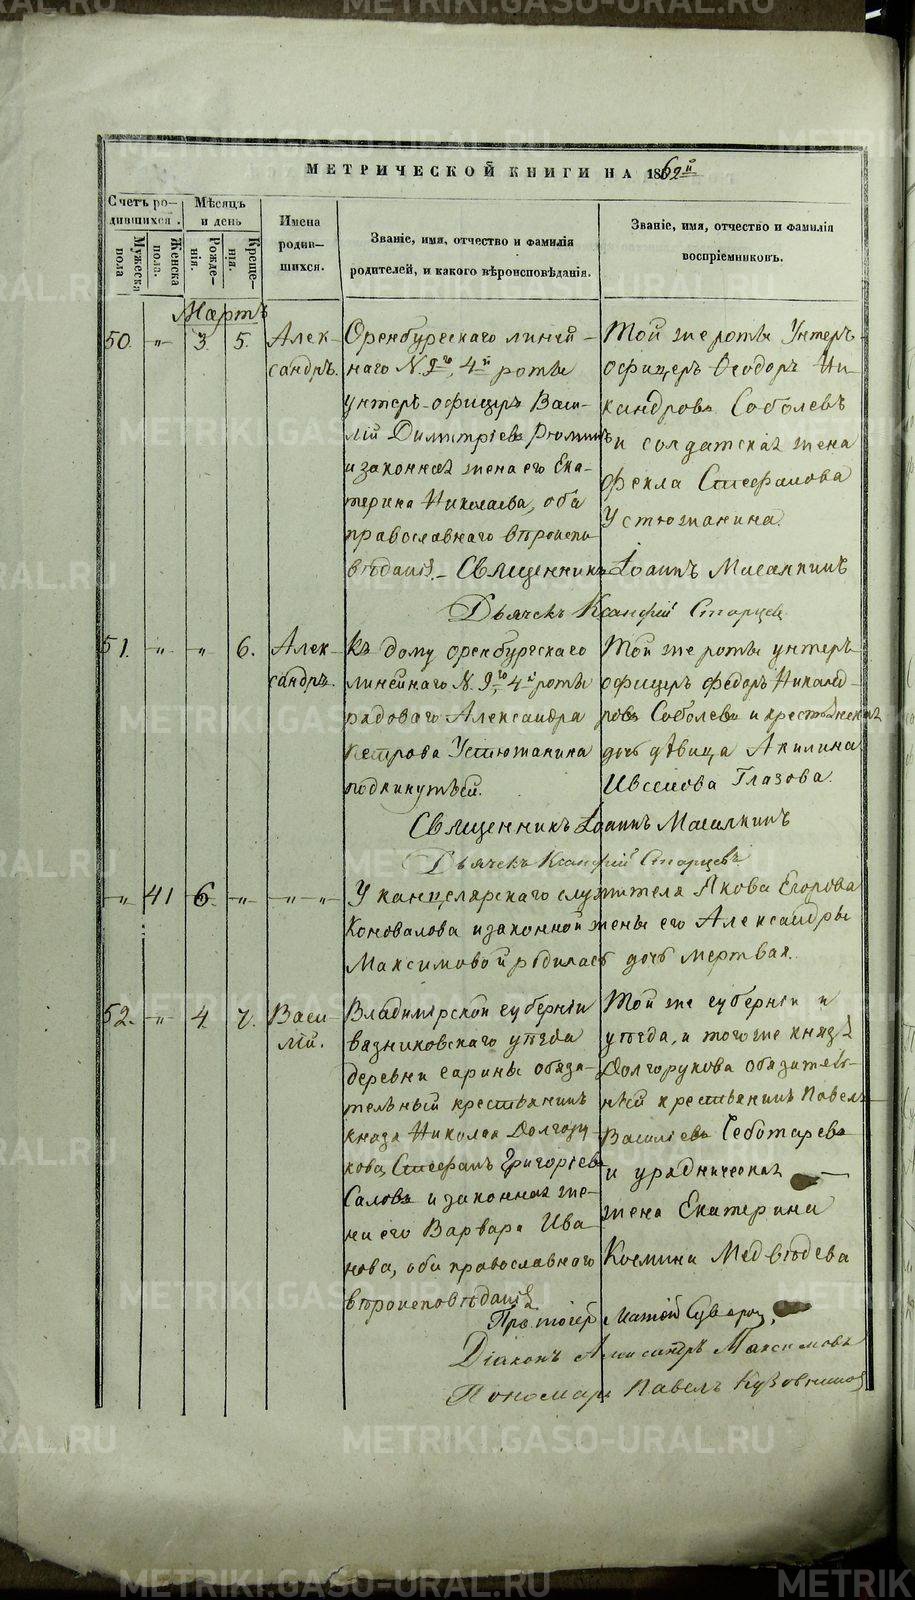 МЕТРИЧЕСКОЙ КНИГИ НА 1862й
Счетъ ро-
дившихся.
Мѣсяцъ
и день
Мужеска
пола
Женска
пола.
Рожде-
нія.
Креще-
нія.
Имена
родив-
шихся.
Званіе, имя, отчество и фамилія
родителей, и какого вѣроисповѣданія.
Званіе, имя, отчество и фамилія
воспріемниковъ.
Мартъ
50. „ 3. 5. Алек-
сандръ.
Оренбургскаго линей-
наго N. 9го, 4й роты
унтеръ-офицеръ Васи-
лій Димитріевъ Рюминъ
и законная жена его Ека-
терина Николаева, оба
православнаго вѣроиспо-
вѣданія.
Той же роты Унтеръ-
офицеръ Ѳеодоръ Ни-
кандровъ Соболевъ
и солдатская жена
Фекла Стефанова
Устюжанина.
Священникъ Іоаннъ Масалкинъ
Дьячекъ Ксанфій Старцевъ
51. „ „ 6. Алек-
сандръ.
Къ дому Оренбургскаго
линейнаго N. 9го, 4й роты
рядоваго Александра
Петрова Устюжанина
подкинутый.
Той же роты унтеръ
офицеръ Федоръ Никанд-
ровъ Соболевъ и крестьянская
дочь дѣвица Акилина
Ивсеиова Глазова.
Священникъ Іоаннъ Масалкинъ
Дьячекъ Ксанфій Старцевъ
„ 41 6. „ „ „
У канцелярскаго служителя Якова Егорова
Коновалова и законной жены его Александры
Максимовой родилась дочь мертвая.
52. „ 4. 7. Васи-
лій.
Владимірской губерніи
вязниковскаго уѣзда
деревни сарины обяза-
тельный крестьянинъ
князя Николая Долгору-
кова, Стефанъ Григорьевъ
Саловъ и законная же-
на его Варвара Ива-
нова, оба православнаго
вѣроисповѣданія
Той же губерніи и
уѣзда, и того же князя
Долгорукова обязатель-
ный крестьянинъ Павелъ
Василіевъ Чеботаревъ
и урядническая
жена Екатерина
Козмина Медвѣдева
Протоіерей
Діаконъ Александръ Максимовъ
Пономарь Павелъ
METRIKI.GASO-URAL.RU